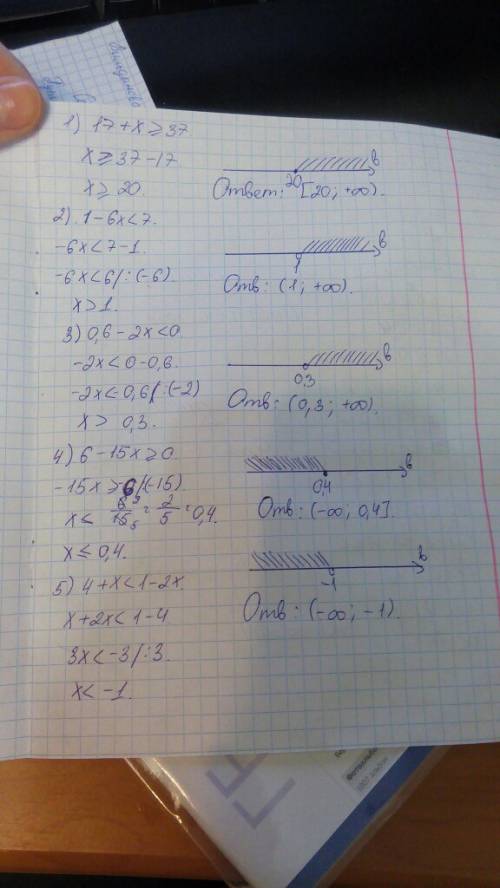 1) 17+x≥37
x≥37-17
x≥20.
20
в
Ответ: [20; +∞).
2) 1-6x<7.
-6x<7-1.
-6x<6/:(-6).
x>1.
1
в
Отв: (1; +∞).
3) 0,6-2x<0.
-2x<0-0,6.
-2x<0,6/:(-2)
x> 0,3.
0,3
в
Отв: (0,3; +∞).
4) 6-15x≥0
-15x≥-6/(-15).
x≤ 6/15 = 2/5 = 0,4.
x≤0,4.
0,4
в
Отв: (-∞; 0,4].
5) 4+x<1-2x.
x+2x<1-4
3x<-3/:3.
x<-1.
-1
в
Отв: (-∞; -1).